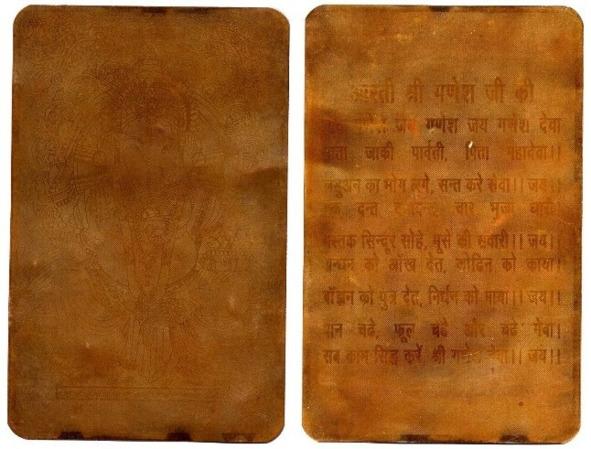 आरती श्री गणेश जी की
गणेश जय गणेश जय गणेश देवा
माता जाकी पार्वती, पिता महादेवा।।
लड्डुअन का भोग लगे, सन्त करे सेवा।। जय।
दन्त चार भुजा धारी
मस्तक सिन्दूर सोहे, मूसे की सवारी।। जय।
अन्धन को आंख देत, कोढिन को काया।
बाँझन को पुत्र देत, निर्धन को माया।। जय।।
पान चढे, फूल चढे और चढे मेवा।
सब काम सिद्ध करें श्री गणेश देवा।। जय।।